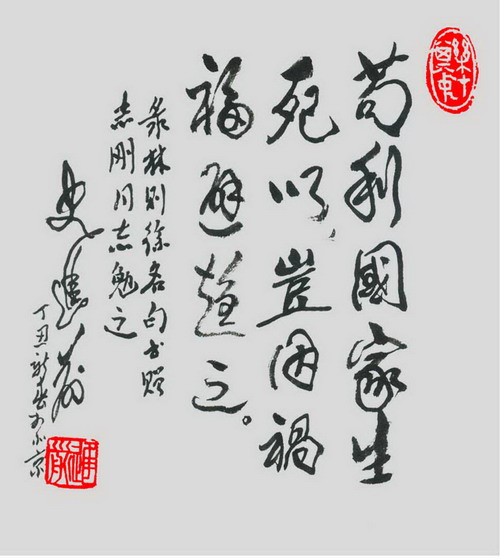 苟利國家生
死以，豈因禍
福避趨之。
录林则徐名句书赠
志刚同志勉之
史進前
丁丑新春于北京